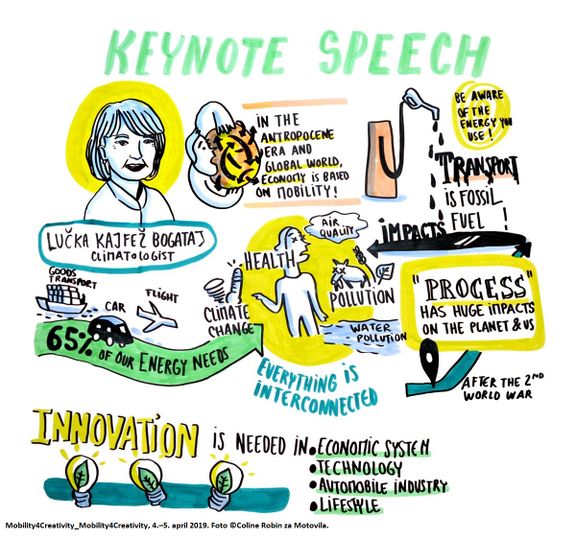 KEYNOTE SPEECH
LUČKA KAJFEŽ BOGATAJ
CLIMATOLOGIST
IN THE
ANTROPOCENE
ERA AND
GLOBAL WORLD,
ECONOMY IS BASED
ON MOBILITY!
BE AWARE
OF THE
ENERGY YOU
USE!
TRANSPORT
IS FOSSIL
FUEL!
GOODS
TRANSPORT
CAR
FLIGHT
65% OF OUR ENERGY NEEDS
IMPACTS
AIR
QUALITY
HEALTH
CLIMATE
CHANGE
POLLUTION
WATER
POLLUTION
EVERYTHING IS
INTERCONNECTED
"PROCESS"
HAS HUGE IMPACTS
ON THE PLANET & US
AFTER THE 2ND
WORLD WAR
INNOVATION IS NEEDED IN
• ECONOMIC SYSTEM
• TECHNOLOGY
• AUTOMOBILE INDUSTRY
• LIFESTYLE
Mobility4Creativity_Mobility4Creativity, 4.–5. april 2019. Foto ©Coline Robin za Motovila.